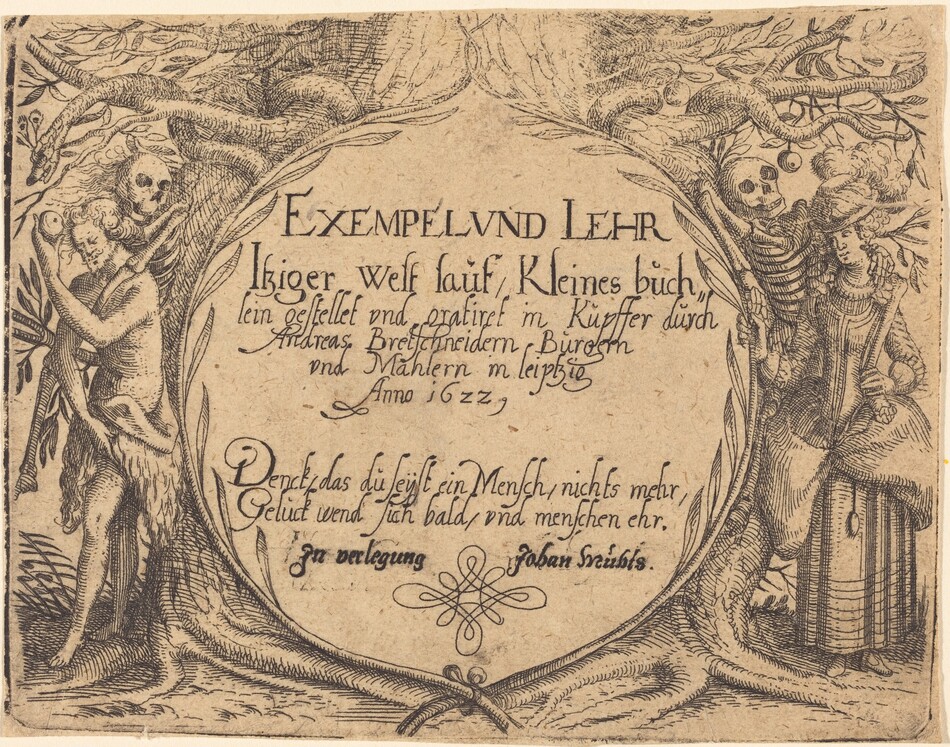 EXEMPEL VND LEHR
Itziger Welt lauf, Kleines büch„
lein gestellet vnd gratiret in Kupffer dürch
Andreas Bretschneidern Bürgern
vnd Mahlern in leiptzig
Anno 1622,
Denck, das du seÿst ein Mensch, nichts mehr,
Gelück wend sich bald, vnd menschen ehr.
In verlegung Johan